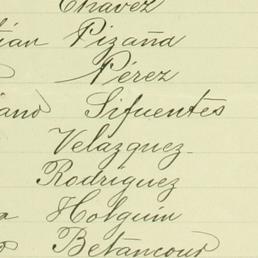 Chavez
ián Pizaña
Pérez
iano Sifuentes
Velázquez.
Rodríguez
a Holguin
os Betancour